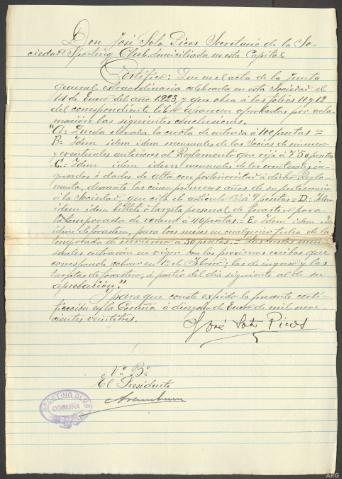 Don José Soto Picos Secretario de la So-
ciedad Sporting Club domiciliada en esta Capital
Certifico: Que en el acta de la Junta
general extraordinaria celebrada en esta Sociedad el
14 de Enero del año 1923, y que obra a los folios 11 y 12
del correspondiente libro aparecen aprobadas por acla-
mación las siguientes conclusiones.
"A: Queda elevada la cuota de entrada a 100 pesetas =
B: Idem idem idem mensuales de los Socios de numero y
eventuales anteriores al Reglamento que rige a 7 pesetas
C: Idem idem idem mensual de los eventuales in-
gresados o dados de alta con posterioridad a dicho Regla-
mento, durante los cinco primeros años de su permanencia
en la Sociedad, que cita el articulo a 9 pesetas = D: Idem
idem idem billete o tarjeta personal de forastero para
temporada de verano a 40 pesetas: E: Idem idem
idem de forastero, para tres meses en cualquier fecha de la
temporada de invierno a 30 pesetas =
entraran en vigor con los proximos recibos que
corresponde cobrar en 1º de Febrero; las de ingreso y las
tarjetas de forastero, a partir del dia siguiente al de su
aprobación."
Y para que conste expido la presente certi-
ficación en La Coruña a de Enero de mil nove-
cientos veintitres.
José Soto Picos
Vº Bº
El Presidente
SPORTING CLUB
CORUÑA
AEG